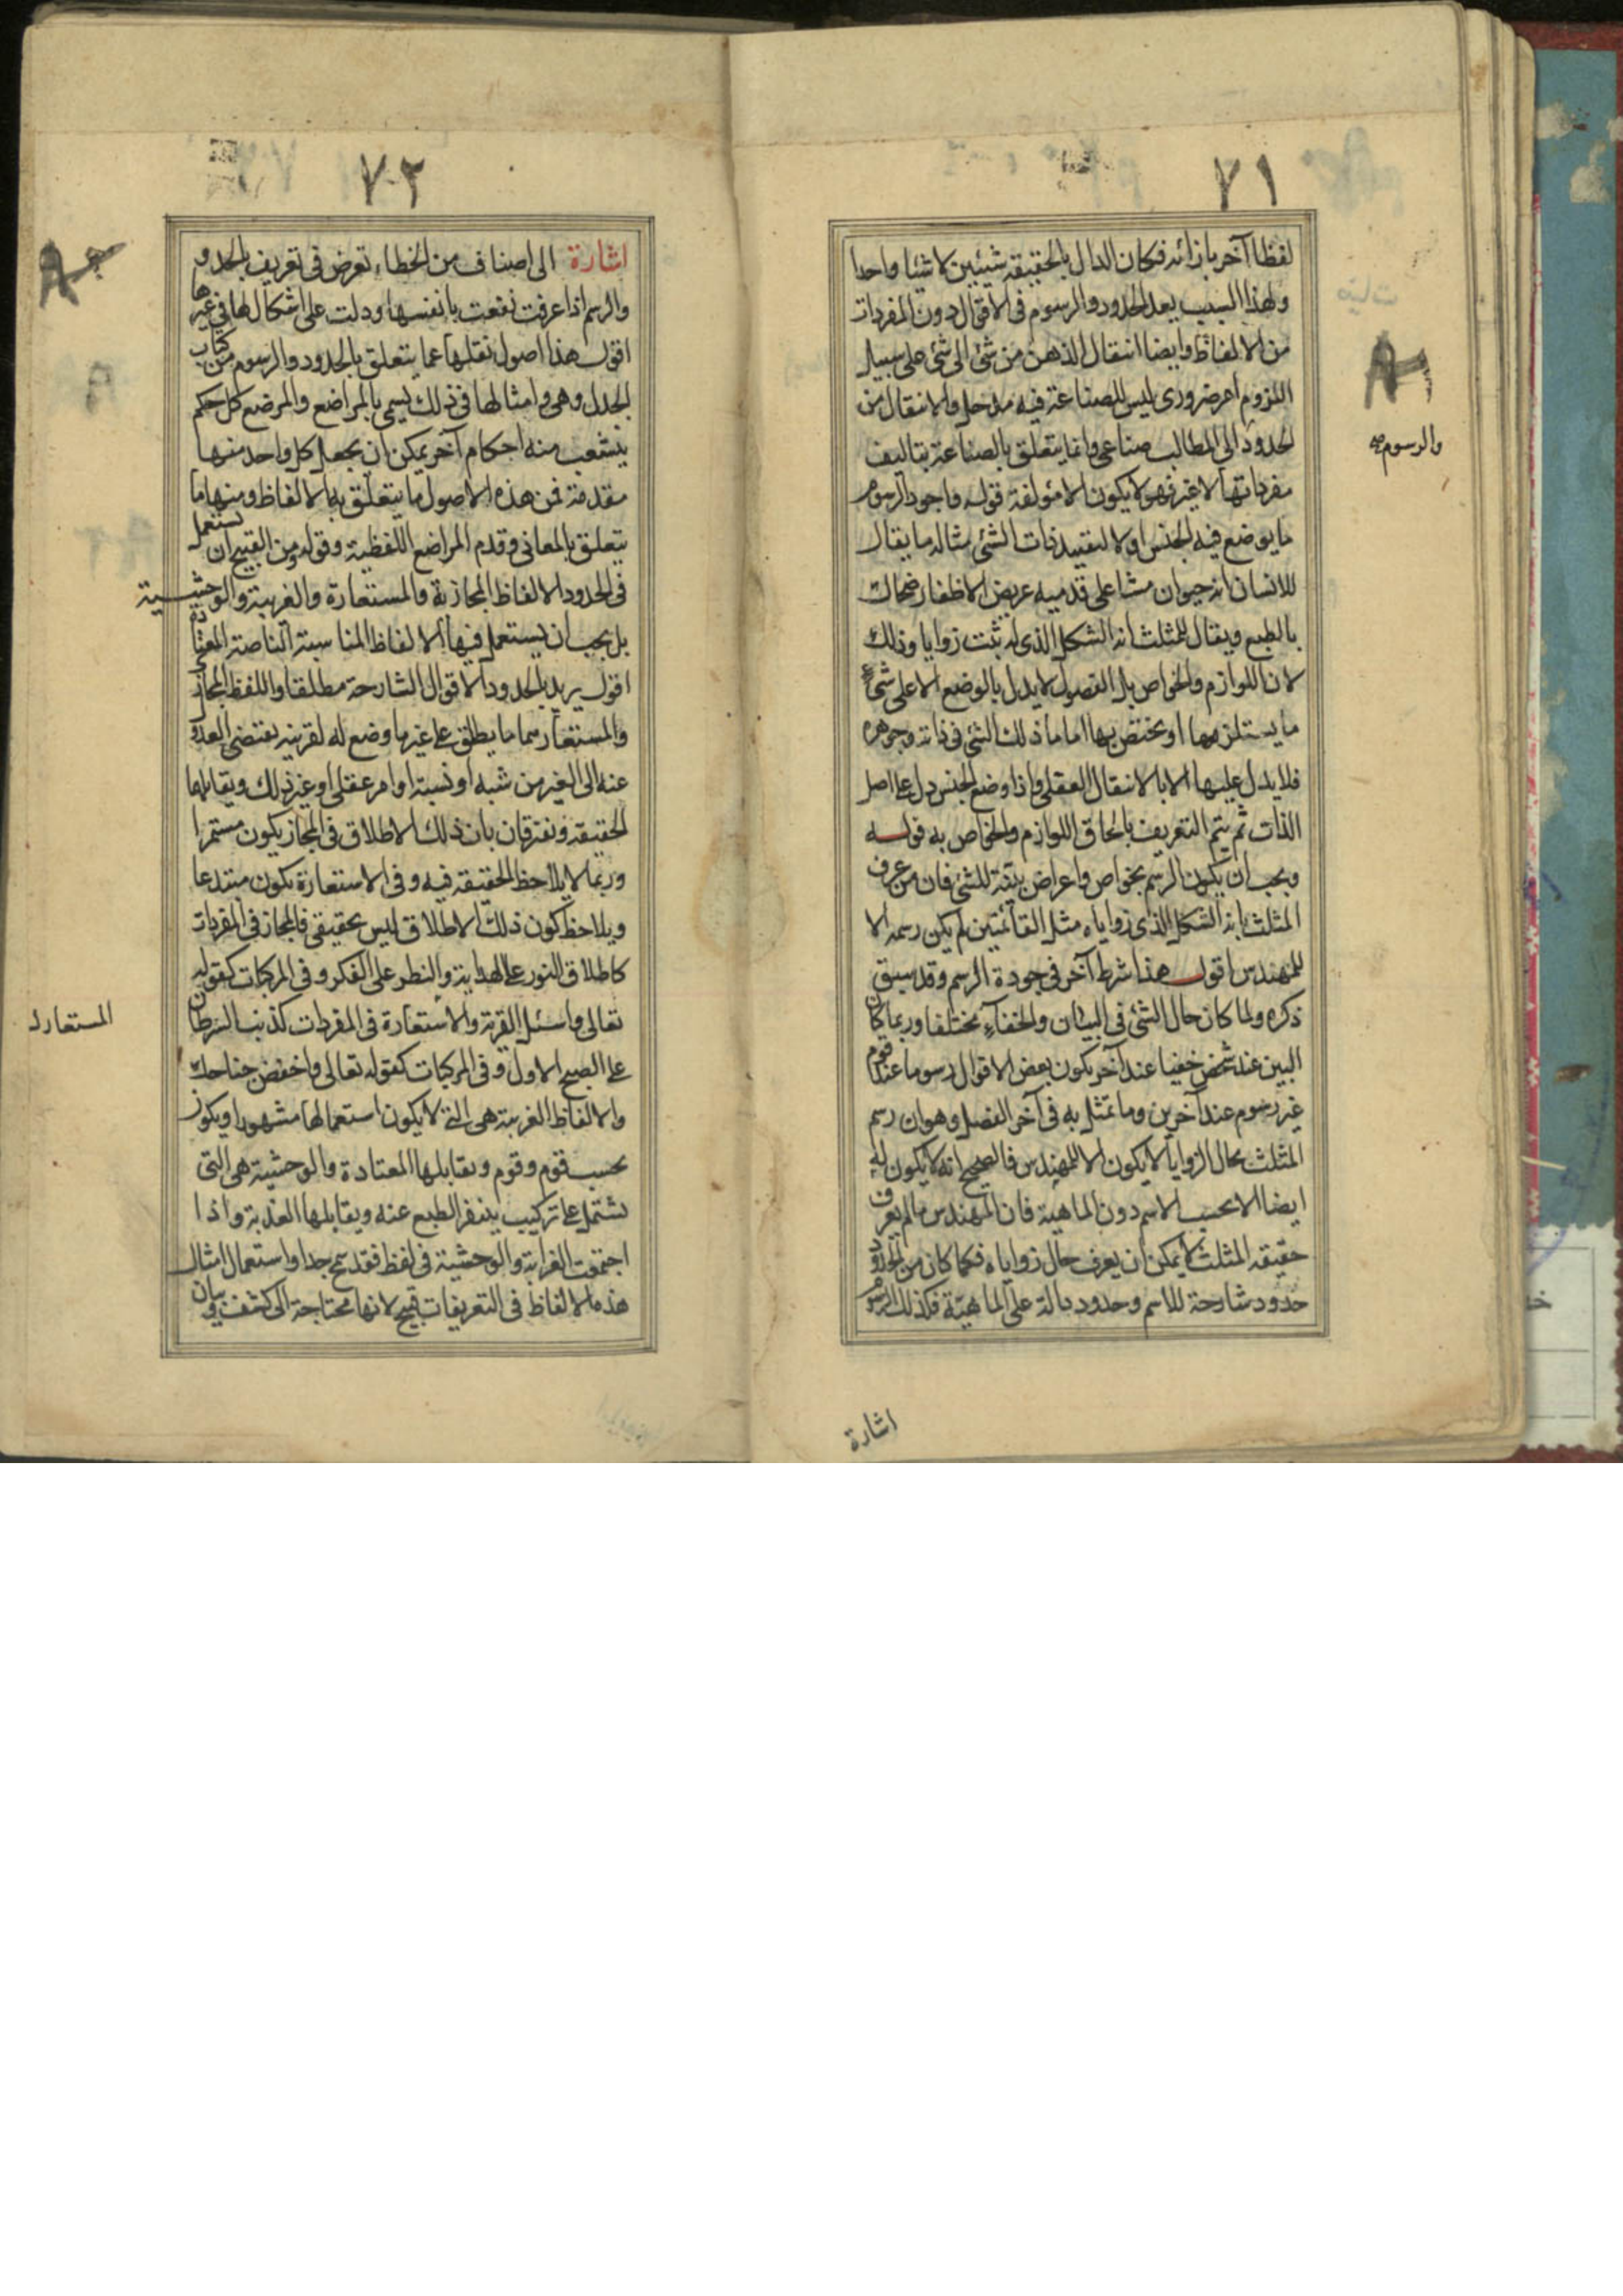 ٧١
لفظا آخر بازائه فكان الدال بالحقيقة شيئين لا شيئا واحدا
ولهذا السبب يعد الحدود والرسوم فى الاقوال دون المفردات
من الالفاظ وايضا انتقال الذهن من شئ الى شئ على سبيل
اللزوم امر ضرورى ليس للصناعة فيه مدخل والانتقال من
الحدود الى المطالب صناعى وانما يتعلق بالصناعة بتاليف
والرسوم صح
مفرداتها لا غير فهو لا يكون الا مؤلفة قوله واجود الرسوم
ما يوضع فيه الجنس اولا لتقييد ذات الشئ مثاله ما يقال
للانسان انه حيوان مشاء على قدميه عريض الاظفار ضحاك
بالطبع ويقال للمثلث انه الشكل الذى له ثلث زوايا وذلك
لان اللوازم والخواص بل الفصول لا يدل بالوضع الا على شئ
ما يستلزمها او يختص بها اما ما ذلك الشئ فى ذاته وجوهره
فلا يدل عليها الا بالانتقال العقلى واذا وضع الجنس دل على اصل
الذات ثم يتم التعريف بالحاق اللوازم والخواص به قوله
ويجب ان يكون الرسم بخواص واعراض بينة للشئ فان من عرف
المثلث بانه الشكل الذى زواياه مثل القائمتين لم يكن رسمه الا
للمهندس اقول هذا شرط آخر فى جودة الرسم وقد سبق
ذكره ولما كان حال الشئ فى البيان والخفاء مختلفا وربما كان
البين عند شخص خفيا عند آخر يكون بعض الاقوال رسوما عند قوم
غير رسوم عند آخرين وما تمثل به فى آخر الفصل وهو ان رسم
المثلث بحال الزوايا لا يكون الا للمهندس فالصحيح انه لا يكون له
ايضا الا بحسب الاسم دون الماهية فان المهندس ما لم يعرف
حقيقة المثلث لا يمكن ان يعرف حال زواياه فكما كان من الحدود
حدود شارحة للاسم وحدود دالة على الماهية فكذلك الرسوم
اشارة
٧٢
اشارة الى اصناف من الخطاء تعرض فى تعريف بالحد و
والرسم اذا عرفت نفعت بانفسها ودلت على اشكال لها فى غيرها
اقول هذا اصول نقلها عما يتعلق بالحدود والرسوم من كتاب
الجدل وهى وامثالها فى ذلك يسمى بالمراضع والمرضع كل حكم
ينشعب منه احكام آخر يمكن ان يجعل كل واحد منها
مقدمة فمن هذه الاصول ما يتعلق بالالفاظ ومنها ما
يتعلق بالمعانى وقدم المراضع اللفظية وقوله ومن القبيح ان يستعمل
فى الحدود الالفاظ المجازية والمستعارة والغريبة والوحشية
بل يجب ان يستعمل فيها الالفاظ المناسبة الناصة المعتادة
اقول يريد بالحدود الاقوال الشارحة مطلقا واللفظ المجاز
والمستعار سما ما يطلق على غير ما وضع له لقرينه يقتضى العدو
عنه الى الغير من شبه او نسبة او امر عقلى او غير ذلك ويقابلها
الحقيقة ونفترقان بان ذلك الاطلاق فى المجاز يكون مستمرا
وربما لا يلاحظ الحقيقة فيه وفى الاستعارة يكون مبتدعا
ويلاحظ كون ذلك الاطلاق ليس بحقيقى فالمجاز فى المفردات
كاطلاق النور على الهداية والنظر على الفكر وفى المركبات كقوله
تعالى واسئل القرية والاستعارة فى المفردات كذنب السرطان
على الصبح الاول وفى المركبات كقوله تعالى واخفض جناحك
والالفاظ الغريبة هى التى لا يكون استعمالها مشهورا ويكون
بحسب قوم وقوم ويقابلها المعتادة والوحشية هى التى
يشتمل على تركيب ينفر الطبع عنه ويقابلها العذبة واذا
اجتمعت الغرابة والوحشية فى لفظ فقد سمج جدا واستعمال امثال
هذه الالفاظ فى التعريفات قبيح لانها محتاجة الى كشف وبيان